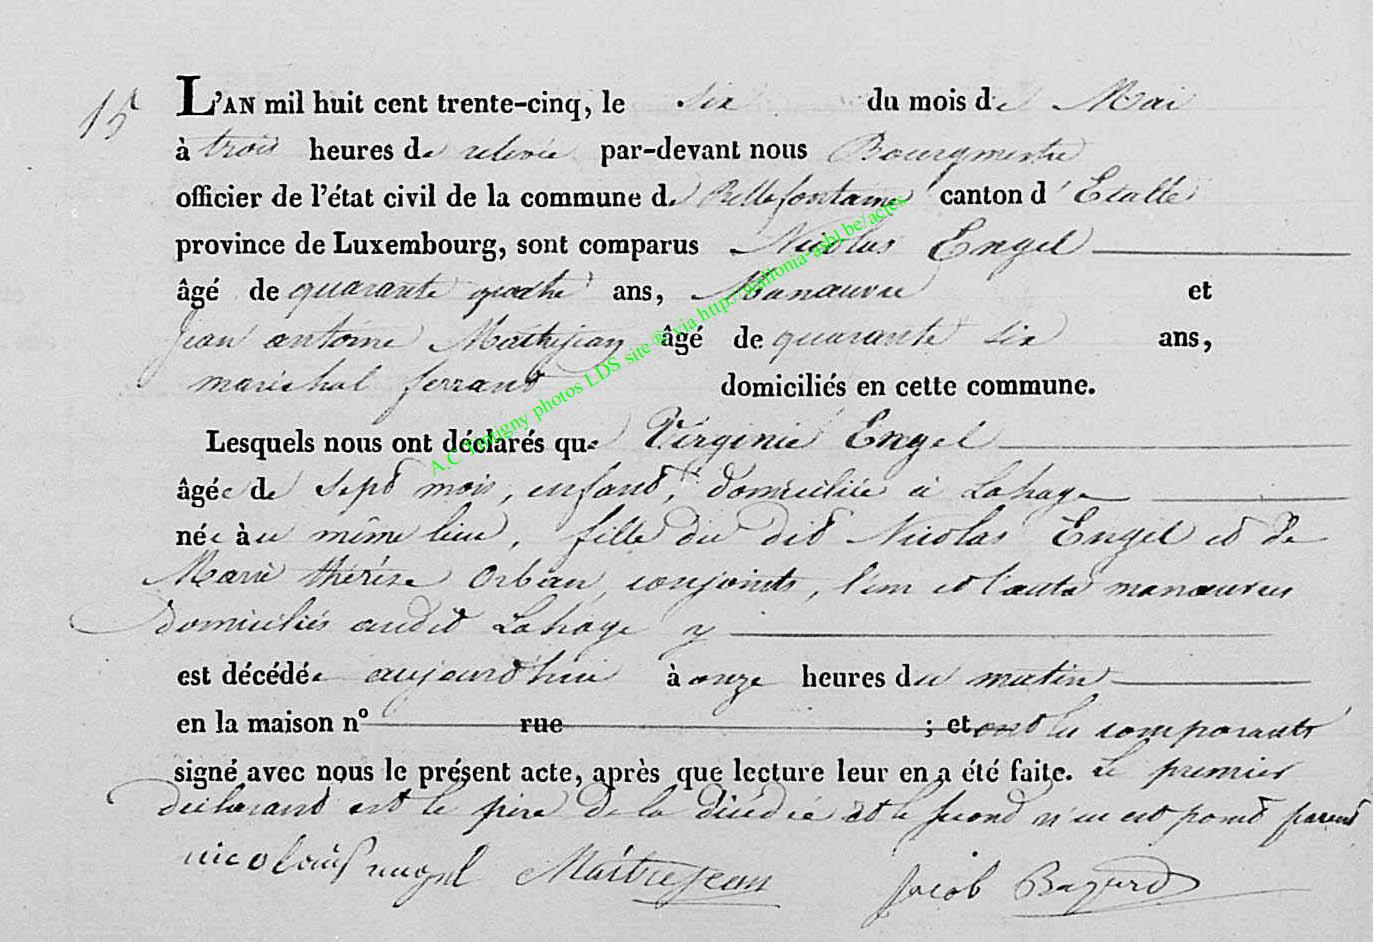 15 L'AN mil huit cent trente-cinq, le six du mois de Mai
à trois heures de relevée par-devant nous Bourgmestre
officier de l'état civil de la commune de Bellefontaine canton d'Etalle
province de Luxembourg, sont comparus Nicolas Engel
âgé de quarante quatre ans, Manœuvre et
Jean antoine Maitrejean âgé de quarante six ans,
maréchal ferrant domiciliés en cette commune.
Lesquels nous ont déclarés que Virginie Engel
âgée de sept mois, enfant, domiciliée à Lahage
née àu même lieu, fille du dit Nicolas Engel et de
Marie thérèse Orban, conjoints, l'un et l'autre manœuvres
domiciliés audit Lahage y
est décédée aujourd'hui à onze heures du matin
en la maison nº rue ; et ont les comparants
signé avec nous le présent acte, après que lecture leur en a été faite. Le premier
déclarant est le père de la décédée et le second n'en est point parent
nicolas engel Maitrejean Jacob Bazard
A.C Tintigny photos LDS site ® via http://wallonia-asbl.be/actes